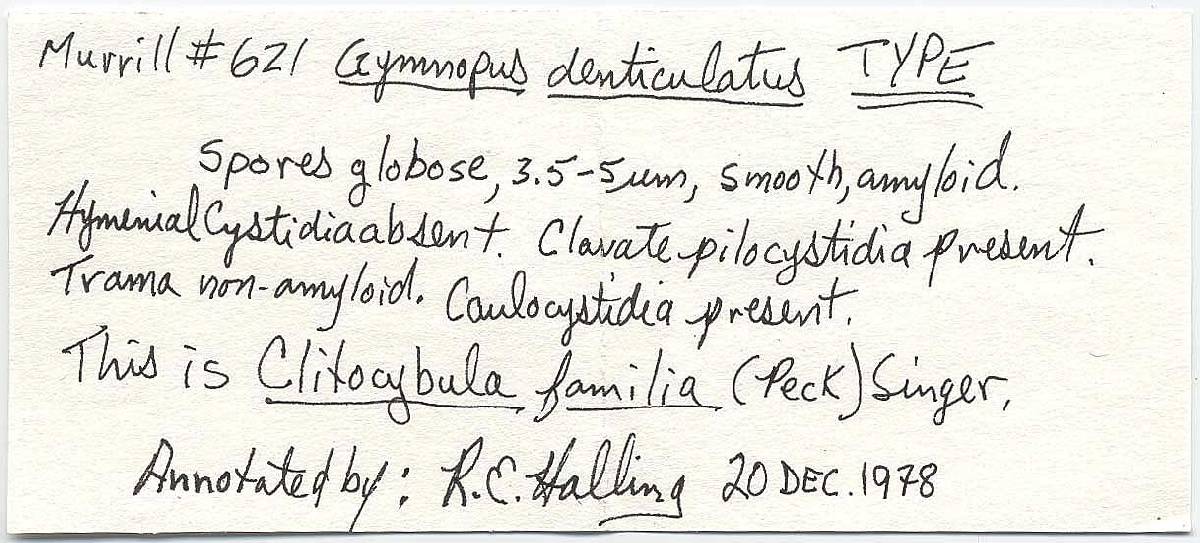 Murrill #621 Gymnopus denticulatus TYPE
Spores globose, 3.5-5um, smooth, amyloid.
Hymenial Cystidia absent. Clavate pilocystidia present.
Trama non-amyloid. Caulocystidia present.
This is Clitocybula familia (Peck) Singer.
Annotated by: R.E. Halling 20 DEC. 1978